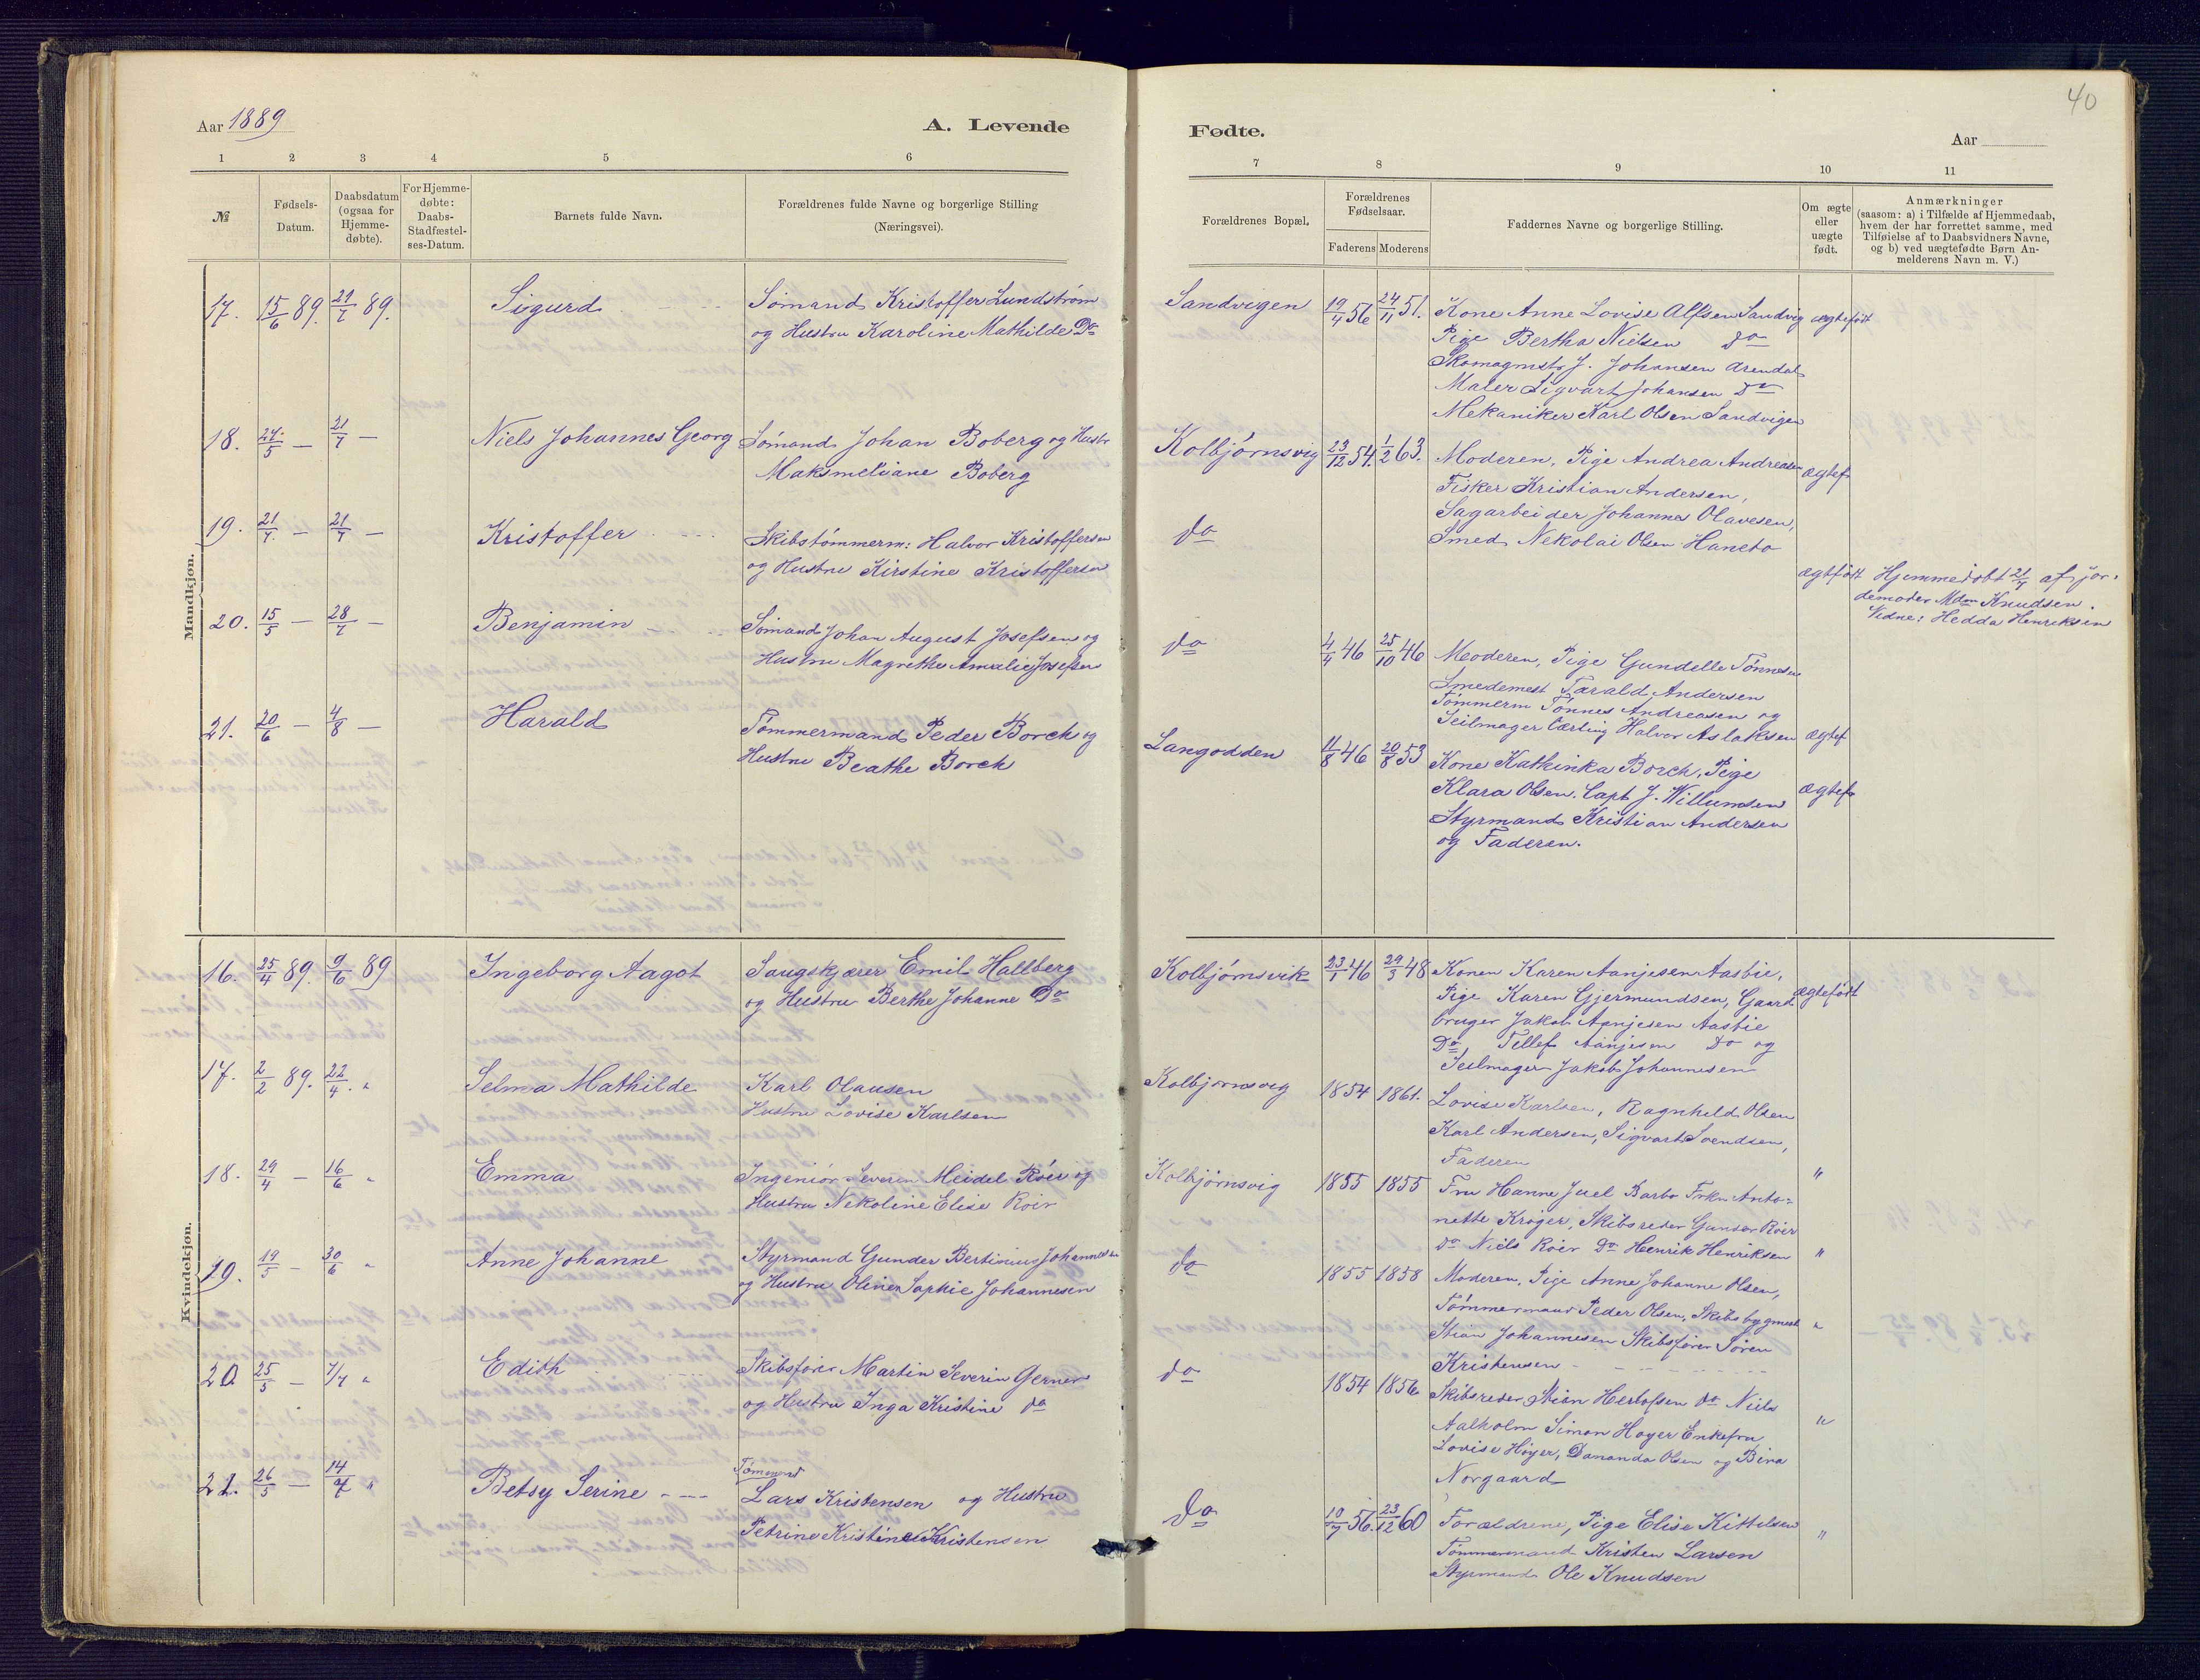 40
Aar 1889
A. Levende
Fødte.
Aar
1 2 3 4 5 6
7 8 9 10 11
№
Fødsels-Datum.
Daabsdatum (ogsaa for Hjemme-døbte).
For Hjemme-døbte: Daabs-Stadfæstel-ses-Datum.
Barnets fulde Navn.
Forældrenes fulde Navne og borgerlige Stilling
(Næringsvei).
Forældrenes Bopæl.
Forældrenes Fødselsaar.
Faderens Moderens
Faddernes Navne og borgerlige Stilling.
Om ægte eller uægte født.
Anmærkninger
(saasom: a) i Tilfælde af Hjemmedaab,
hvem der har forrettet samme, med
Tilføielse af to Daabsvidners Navne,
og b) ved uægtefødte Børn An-
melderens Navn m. V.)
Mandkjøn.
17. 15/6 89. 21/7 89. Sigurd Sømand Kristoffer Lundstrøm
og Hustru Karoline Mathilde Do
Sandvigen 19/4 56 24/11 51. Kone Anne Lovise Alfsen Sandvig ægtefødt
Pige Bertha Nielsen do
Skomagmstr J. Johansen Arendal
Maler Sigvart Johansen Do
Mekaniker Karl Olsen Sandvigen
18. 24/5 — 21/7 — Niels Johannes Georg Sømand Johan Boberg og Hustr
Maksmeliane Boberg
Kolbjørnsvig 23/12 54. 1/2 63. Moderen, Pige Andrea Andreasen ægtef
Fisker Kristian Andersen,
Sagarbeider Johannes Olavesen,
Smed Nekolai Olsen Haneto
19. 21/7. — 21/7 — Kristoffer Skibstømmerm: Halvor Kristoffersen
og Hustru Kirstine Kristoffersen
do
ægtfødt Hjemmedøbt 21/7 af jor-
demoder Mdm Knudsen.
Vidne: Hedda Henriksen
20. 15/5 — 28/7 — Benjamin Sømand Johan August Josefsen og
Hustru Magrethe Amalie Josefsen
do 4/4 46 25/10 46 Moderen, Pige Gundelle Tønnesen
Smedemest Tarald Andersen
Tømmerm Tønnes Andreasen og
Seilmager Lærling Halvor Aslaksen ægtef
21. 20/6 — 4/8 — Harald Tømmermand Peder Borch og
Hustru Beathe Borch
Langodden 11/8 46 20/8 53 Kone Kathinka Borch, Pige
Klara Olsen. Capt J. Willumsen ægtef
Styrmand Kristian Andersen
og Faderen.
Kvindekjøn.
16. 25/4 89. 9/6 89 Ingeborg Aagot Saugskjærer Emil Hallberg
og Hustru Berthe Johanne Do
Kolbjørnsvik 23/1 46 29/3 48 Konen Karen Aanjesen Aasbie,
Pige Karen Gjermundsen, Gaard- ægtefødt
bruger Jakob Aanjesen Aasbie
Do Tellef Aanjesen Do og
Seilmager Jakob Johannesen
17. 2/2 89. 22/4. " Selma Mathilde Karl Olausen
Hustru Lovise Karlsen
Kolbjørnsvig 1854 1861. Lovise Karlsen, Ragnhild Olsen
Karl Andersen, Sigvart Svendsen,
Faderen "
18. 29/4 — 16/6 " Emma Ingeniør Severin Meidel Röer og
Hustru Nekoline Elise Roer
Kolbjørnsvig 1855 1855 Fru Hanne Juel Barbo Frkn Anto-
nette Krøger, Skibsreder Gunder Röer
do Niels Röer Do Henrik Henriksen "
19. 19/5 — 30/6 " Anne Johanne Styrmand Gunder Bertinius Johannesen
og Hustru Oline Sophie Johannesen
do 1855 1858 Moderen, Pige Anne Johanne Olsen,
Tømmermand Peder Olsen, Skibsbygmest "
Stian Johannesen Skibsfører Søren
Kristensen
20 25/5 — 7/7 " Edith Skibsfører Martin Severin Gerner
og Hustru Inga Kristine do
do 1854 1856 Skibsreder Stian Herlofsen do Niels
Aalholm Simon Høyer Enkefru "
Lovise Høyer, Dananda Olsen og Bina
Norgaard
21. 26/5 — 14/7 " Betsy Serine Tømmerd
Lars Kristensen og Hustru
Petrine Kristine Kristensen
do 10/7 56. 23/12 60 Forældrene, Pige Elise Kittelsen
Tømmermand Kristen Larsen "
Styrmand Ole Knudsen